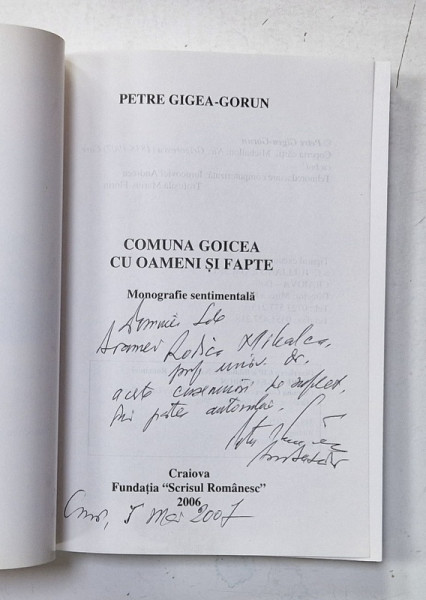 PETRE GIGEA-GORUN
COMUNA GOICEA
CU OAMENI ȘI FAPTE
Monografie sentimentală
Domniei Sale
Doamnei Rodica Mihalca,
prof. univ. dr.
aceste însemnări de suflet,
din partea autorului.
Craiova
Fundația “Scrisul Românesc”
2006
5 Mai 2007